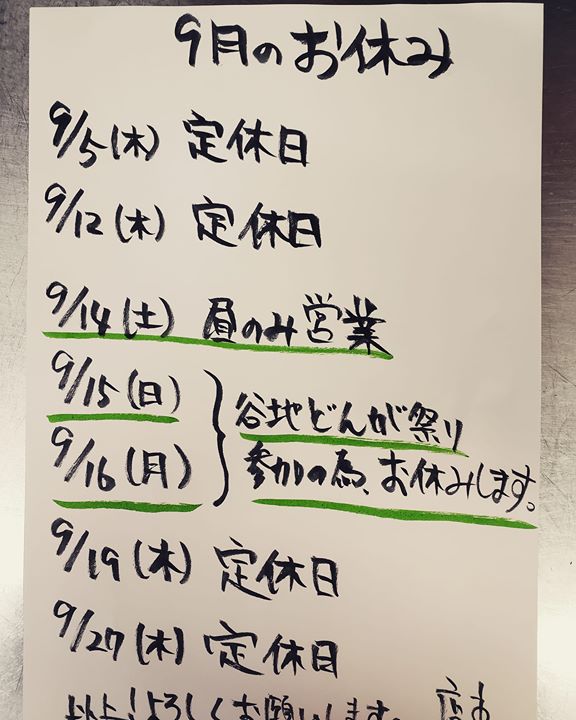 9月のお休み
9/5(木) 定休日
9/12(木) 定休日
9/14(土) 昼のみ営業
9/15(日)
9/16(月)
谷地どんが祭り
参加の為、お休みします。
9/19(木) 定休日
9/27(木) 定休日
以上!よろしくお願いします。 店主